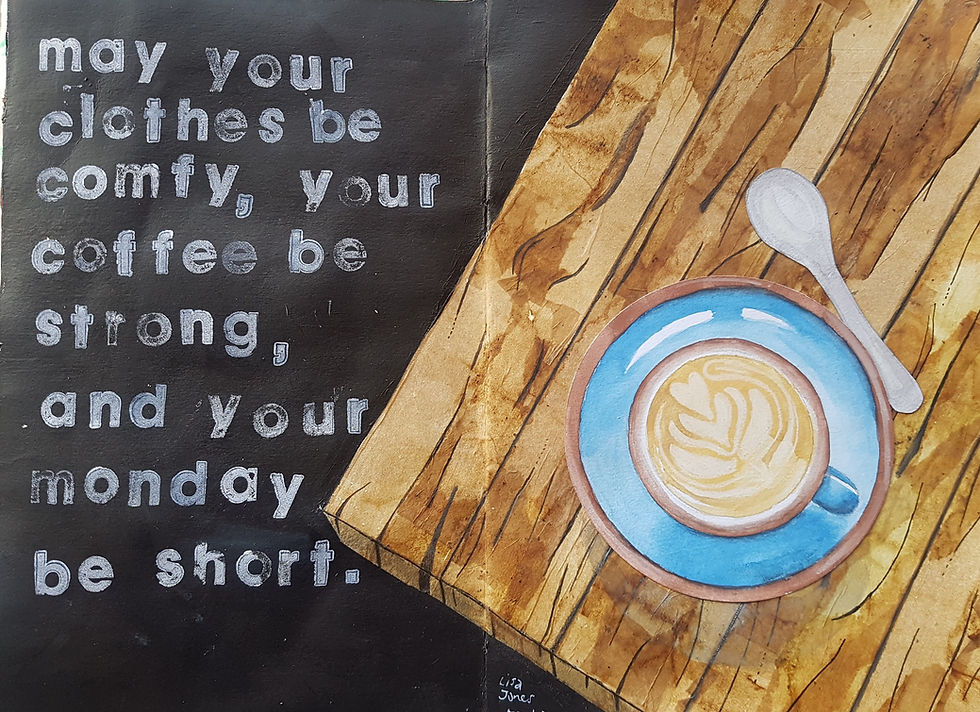 may your
clothes be
comfy, your
coffee be
strong,
and your
monday
be short.
Lisa
Jones